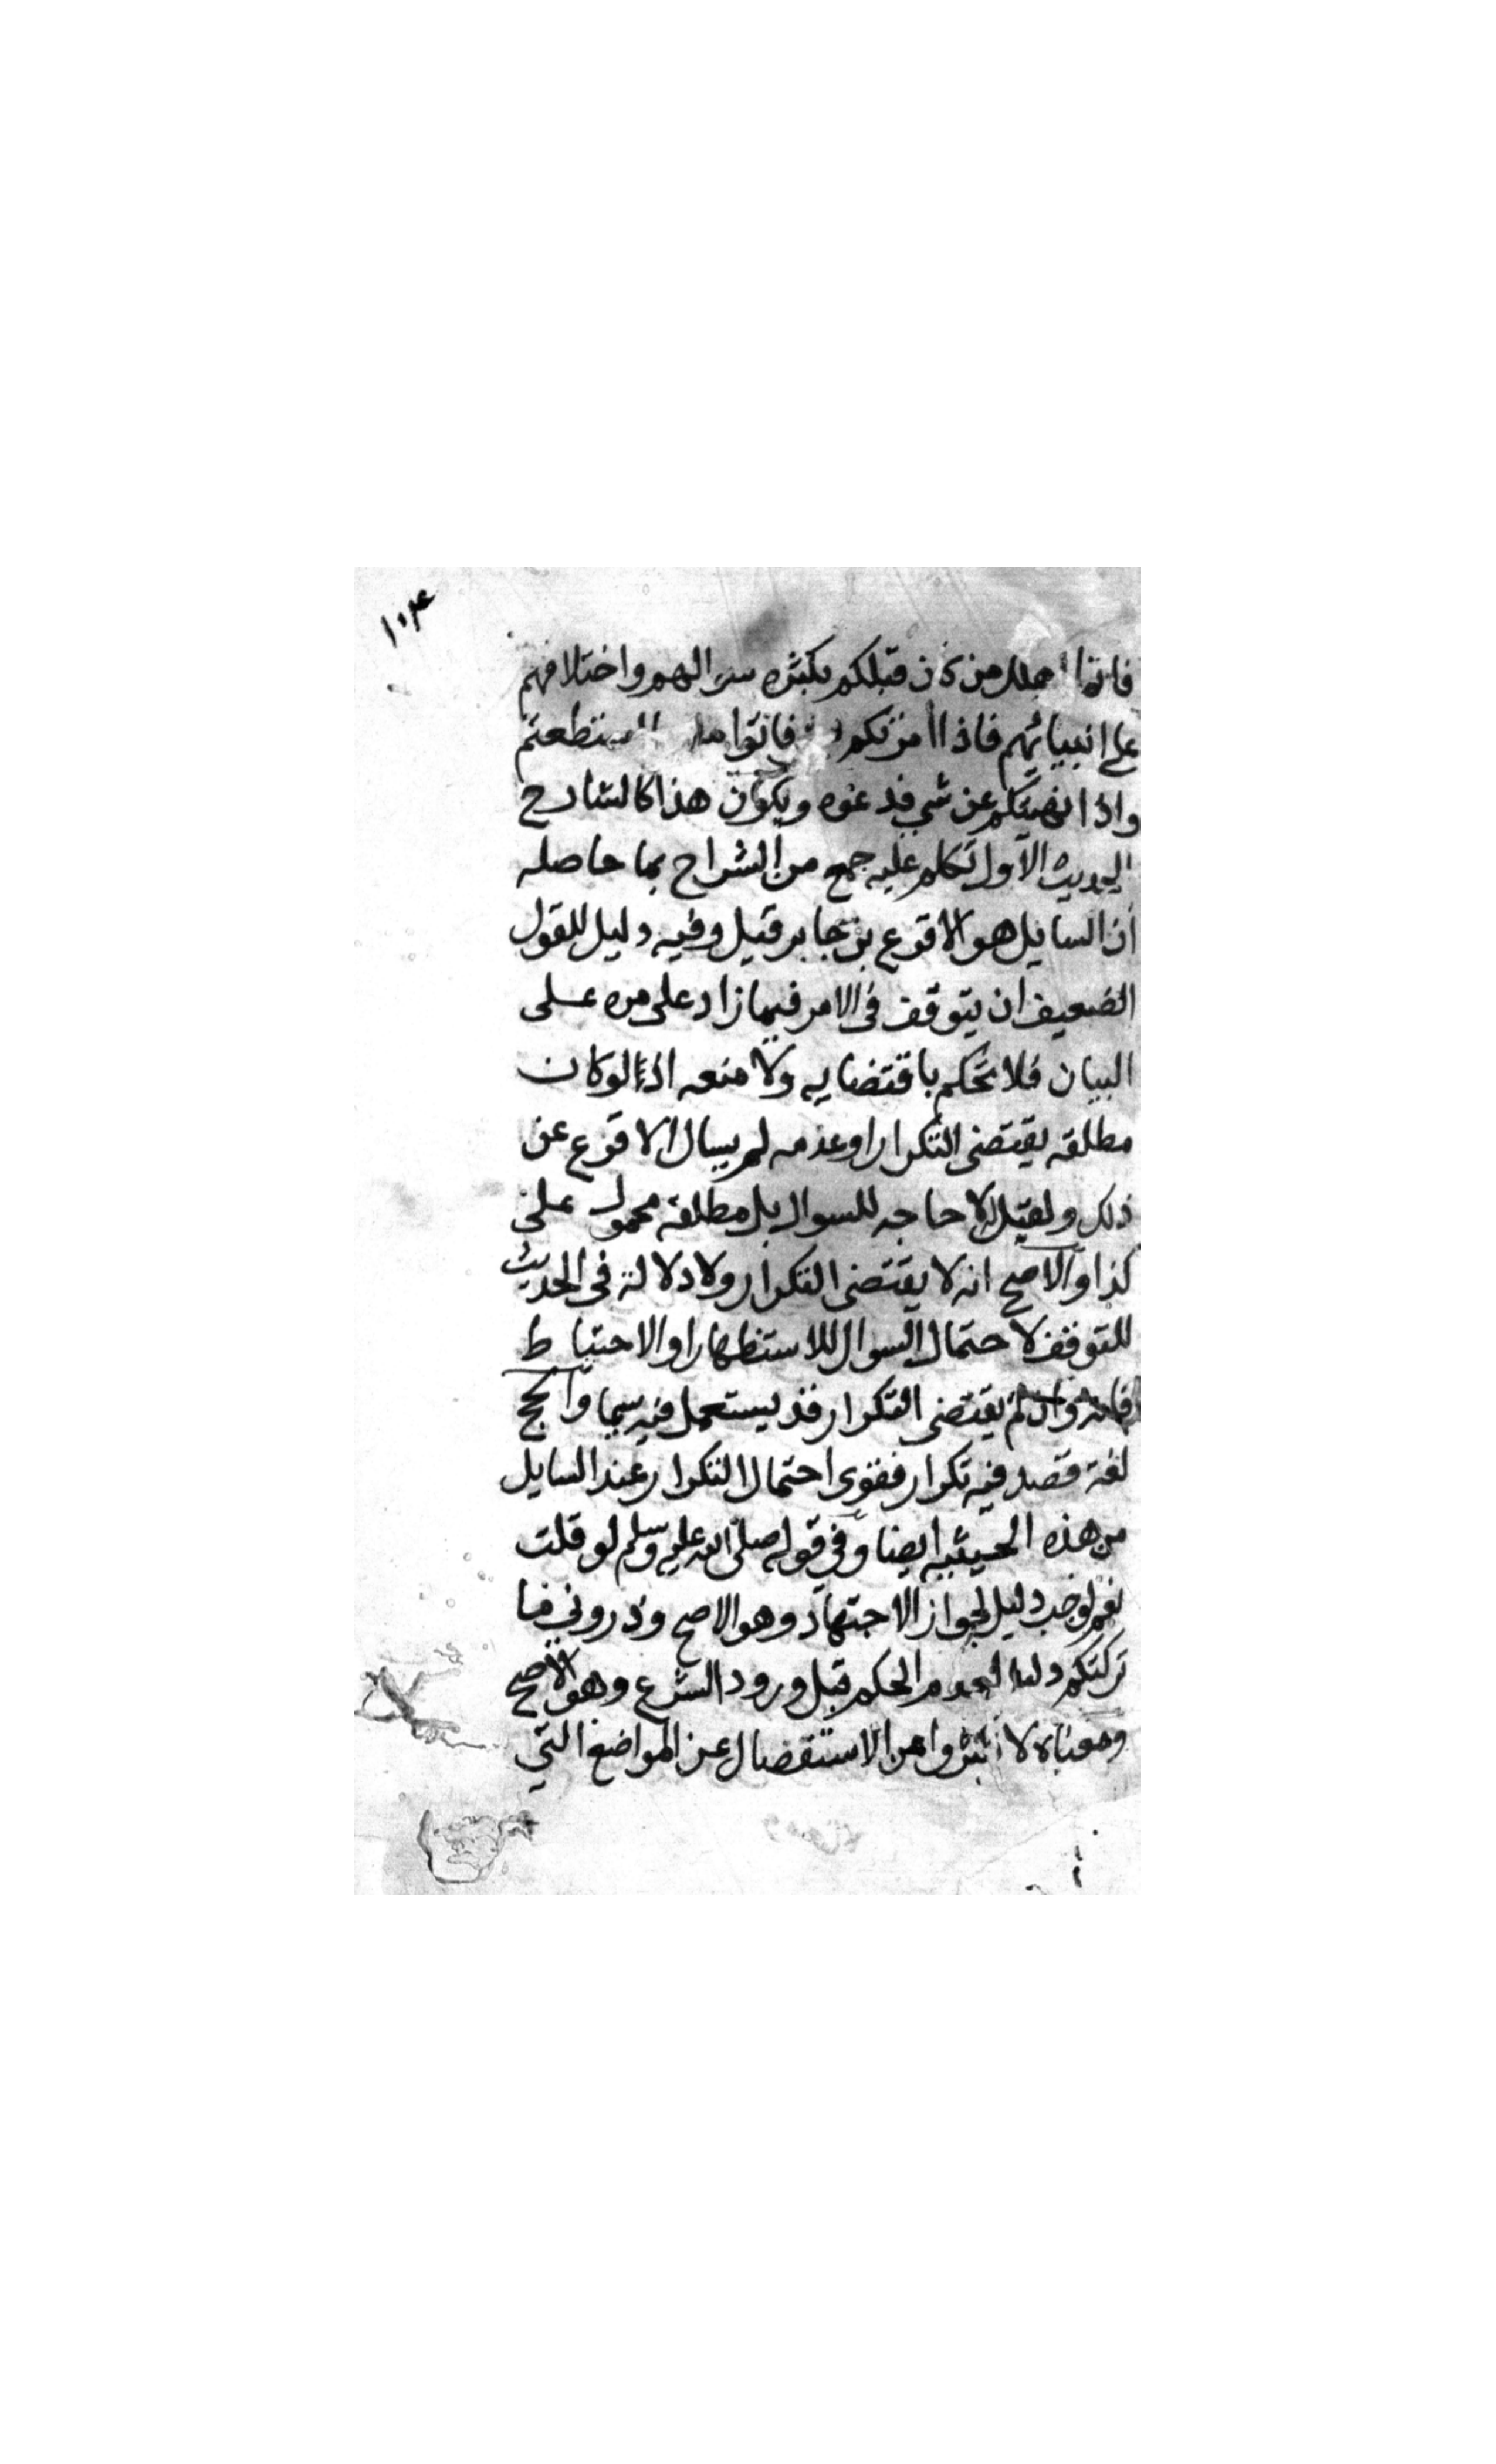 ١٠٤
فانما اهلك من كان قبلكم بكثره سوالهم واختلافهم
على انبيائهم فاذا امرتكم فاتوا منه استطعتم
واذا نهيتكم عن شي فدعوه ويكون هذا كالشارح
الحديث الاول تكلم عليه جمع من الشراح بما حاصله
ان السايل هو الاقرع بن حابر قيل وفيه دليل للقول
الضعيف ان يتوقف في الامر فيما زاد على مره على
البيان فلا تحكم باقتضايه ولا منعه اذ لو كان
مطلقه يقتضي التكرار او عدمه لم يسال الاقرع عن
ذلك ولقيل لا حاجه للسوال بل مطلقه محمول على
كذا والاصح انه لا يقتضي التكرار ولا دلالة في الحديث
للتوقف لاحتمال السوال للاستظهار او الاحتياط
فانه وان لم يقتضي التكرار فقد يستعمل فيه سيما والحج
لغة قصد فيه تكرار فقوي احتمال التكرار عند السايل
من هذه الحيثيه ايضا وفي قوله صلى الله عليه وسلم لو قلت
نعم لوجب دليل لجواز الاجتهاد وهو الاصح وذروني فيما
تركتكم دليل لعدم الحكم قبل ورود الشرع وهو الاصح
ومعناه لا تكثروا من الاستفصال عن المواضع التي